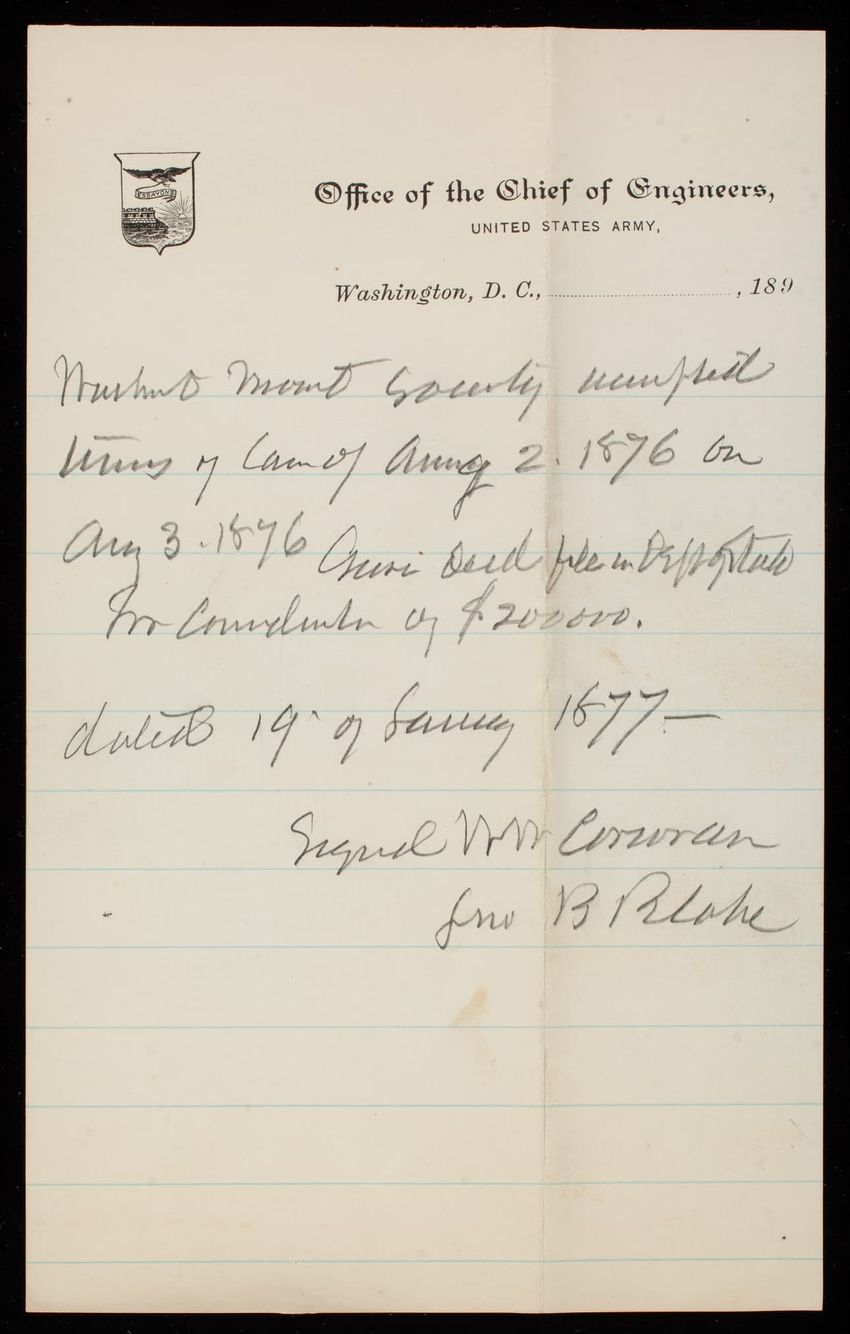 ESSAYONS
Office of the Chief of Engineers,
UNITED STATES ARMY,
Washington, D. C., , 189
Washnt Mont Society accepted
terms of Law of Aug 2. 1876 on
Aug 3. 1876 Gave Deed file in Dept of State
for Consideration of $200000.
dated 19 of January 1877—
Signed WW Corcoran
Jno B Blake